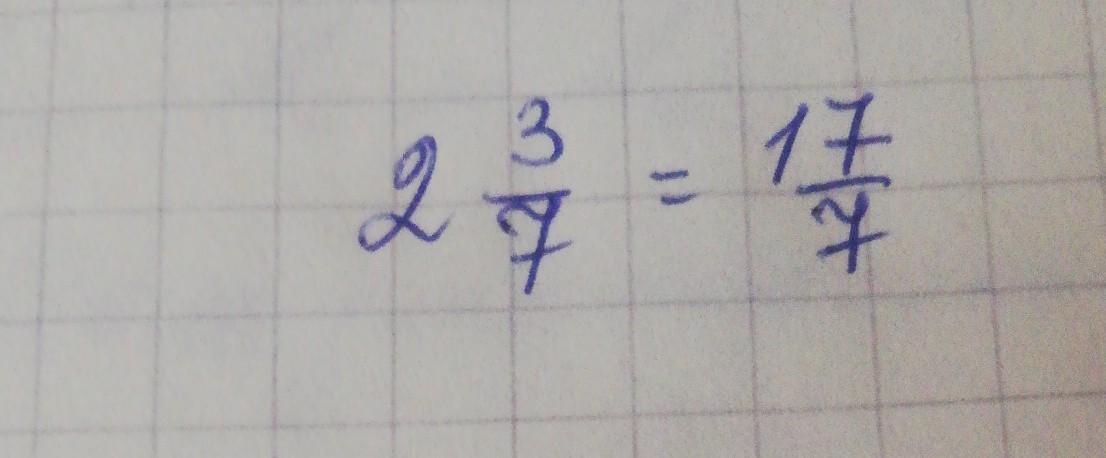 2 3/7 = 17/7